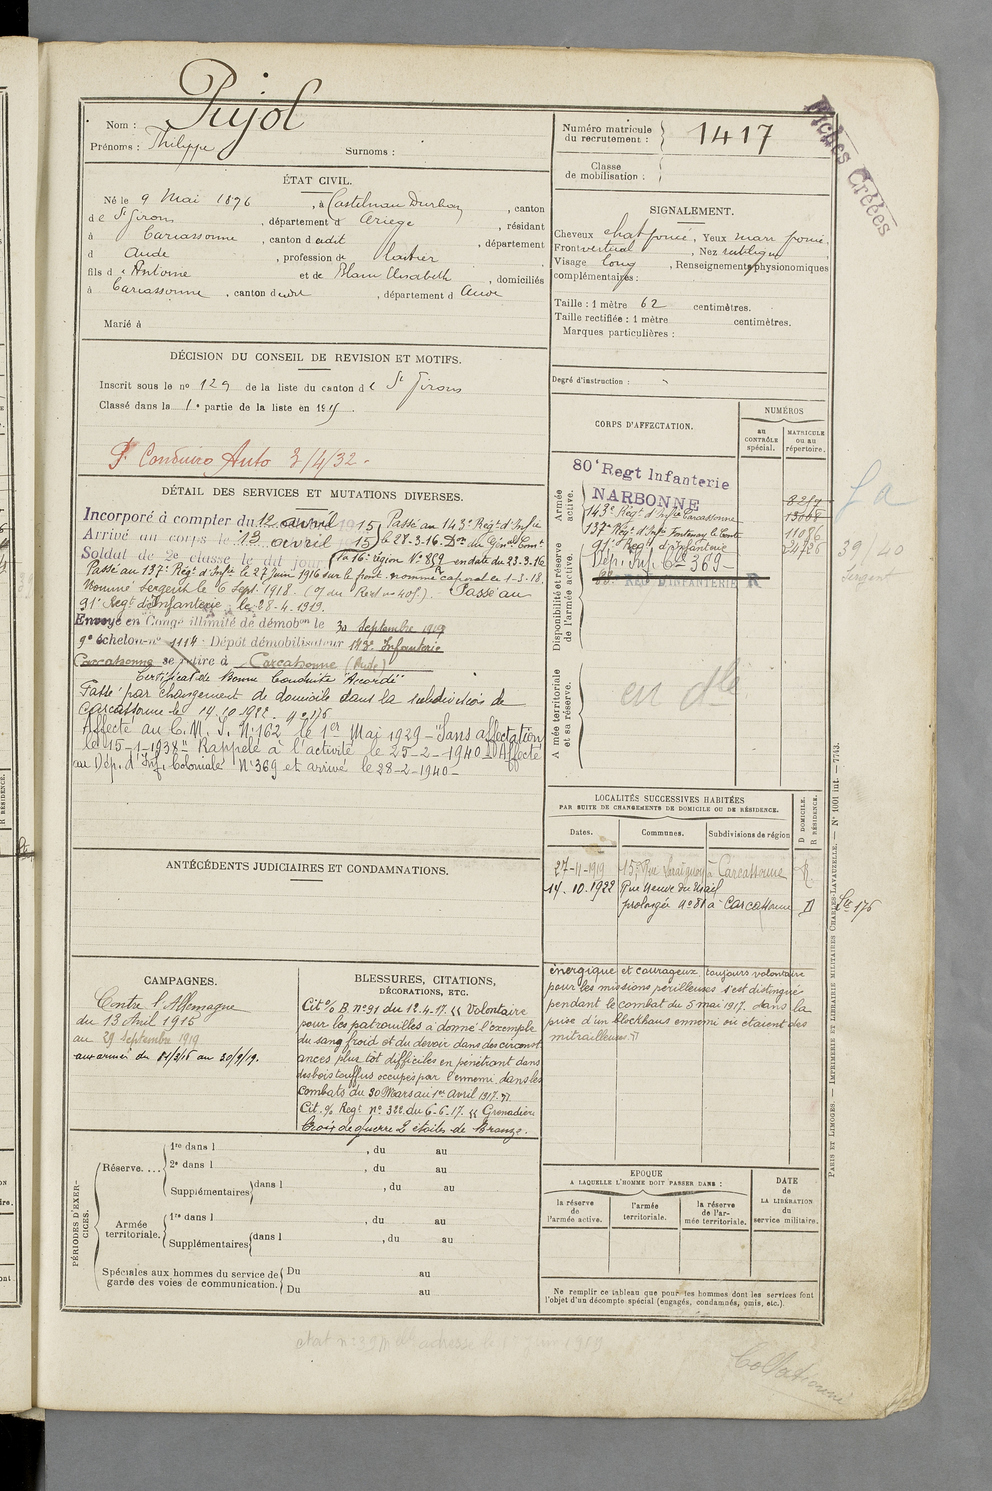 Nom : Pujol
Prénoms : Philippe Surnoms :
Numéro matricule du recrutement : 1417
Classe de mobilisation :
Fiches Créées
ÉTAT CIVIL.
Né le 9 Mai 1896, à Castelnau Durban, canton
de St Girons, département d Ariege, résidant
à Carcassonne, canton d udit, département
d Aude, profession de laitier
fils d e Antoine et de Blain Elisabeth, domiciliés
à Carcassonne, canton dudit, département d Aude
Marié à
SIGNALEMENT.
Cheveux chat foncé, Yeux marr foncé,
Front vertical, Nez rectiligne
Visage long, Renseignements physionomiques
complémentaires :
Taille : 1 mètre 62 centimètres.
Taille rectifiée : 1 mètre centimètres.
Marques particulières :
Degré d'instruction :
DÉCISION DU CONSEIL DE REVISION ET MOTIFS.
Inscrit sous le no 129 de la liste du canton de St Girons
Classé dans la 1e partie de la liste en 1915.
P. Conduire Auto 3/4/32.
CORPS D'AFFECTATION.
NUMÉROS
au CONTRÔLE spécial.
MATRICULE ou au répertoire.
Armée active.
80e Regt Infanterie
NARBONNE
143e Régt d'Infie Carcassonne
137e Régt d'Infie Fontenay le Comte 11086
91e Regt d'Infanterie
Dép. Inf. Cle 369
RÉGT D'INFANTERIE R
Disponibilité et réserve de l'armée active.
Armée territoriale et sa réserve.
en dle
fa
39/40
Sergent
DÉTAIL DES SERVICES ET MUTATIONS DIVERSES.
Incorporé à compter du 12 avril 1915 Passé au 143e Régt d'Infie
Arrivé au corps le 13 avril 15 le 28-3-16. Don du Génal Comt
Soldat de 2e classe le dit jour la 16e région No 869 en date du 23-3-16
Passé au 137e Régt d'Infie le 27 juin 1916 sur le front. nommé caporal le 1-3-18.
Nommé Sergent le 6 Sept. 1918. Passé au
91e Regt d'Infanterie le 28-4-1919.
Envoyé en Congé illimité de démobon le 30 Septembre 1919
9e échelon no 1114 Dépôt démobilisateur 143e Infanterie
Carcassonne se retire à Carcassonne (Aude)
Certificat de Bonne Conduite "Accordé"
Passé par changement de domicile dans la subdivision de
Carcassonne le 14.10.1922.
Affecté au C. M. I. No 162 le 1er Mai 1929 - "Sans affectation"
le 15-1-1938" Rappelé à l'activité le 25-2-1940 - Affecté
au Dép. d'Inf. Coloniale No 369 et arrivé le 28-2-1940 -
LOCALITÉS SUCCESSIVES HABITÉES
PAR SUITE DE CHANGEMENTS DE DOMICILE OU DE RÉSIDENCE.
D DOMICILE. R RÉSIDENCE.
Dates. Communes. Subdivisions de région
27-11-1919 à Carcassonne R
14.10.1922 Rue Neuve du Mail
prolongée no 81 à Carcassonne D
ANTÉCÉDENTS JUDICIAIRES ET CONDAMNATIONS.
CAMPAGNES.
Contre l'Allemagne
du 13 Avril 1915
au 29 Septembre 1919
BLESSURES, CITATIONS,
DÉCORATIONS, ETC.
Cit % B. no 91 du 12.4.17. "Volontaire
pour les patrouilles a donné l'exemple
du sang froid et du devoir dans des circonst
ances plus tôt difficiles en pénétrant dans
des bois touffus occupés par l'ennemi, dans les
combats du 30 Mars au 1er Avril 1917."
Cit. % Regt no 322 du 6-6-17. "Grenadier
énergique et courageux toujours volontaire
pour les missions périlleuses s'est distingué
pendant le combat du 5 mai 1917. dans la
prise d'un blockhaus ennemi où étaient des
mitrailleuses."
Croix de guerre 2 étoiles de Bronze.
PÉRIODES D'EXERCICES.
Réserve....
1re dans l , du au
2e dans l , du au
Supplémentaires dans l , du au
Armée territoriale.
1re dans l , du au
Supplémentaires dans l , du au
Spéciales aux hommes du service de garde des voies de communication.
Du au
Du au
EPOQUE
A LAQUELLE L'HOMME DOIT PASSER DANS :
la réserve de l'armée active.
l'armée territoriale.
la réserve de l'armée territoriale.
DATE de LA LIBÉRATION du service militaire.
Ne remplir ce tableau que pour les hommes dont les services font
l'objet d'un décompte spécial (engagés, condamnés, omis, etc.).
PARIS ET LIMOGES. — IMPRIMERIE ET LIBRAIRIE MILITAIRES CHARLES-LAVAUZELLE. — No 1001 int. — 7743.
Collationné